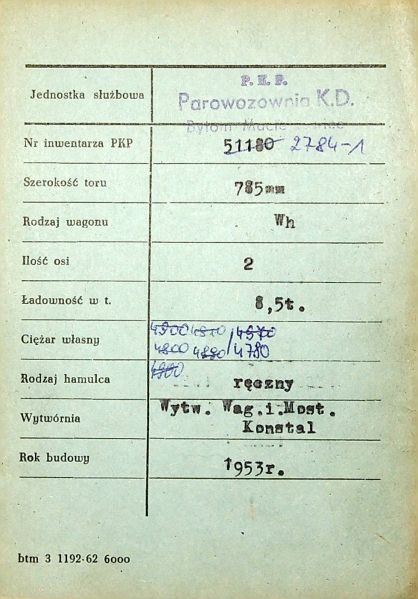 P. K. P.
Jednostka służbowa Parowozownia K.D.
Bytom
Nr inwentarza PKP 51180 2784-1
Szerokość toru 785mm
Rodzaj wagonu Wh
Ilość osi 2
Ładowność w t. 8,5t.
4900 4810 / 4970
Ciężar własny 4800 4890 / 4780
4900
Rodzaj hamulca ręczny
Wytw. Wag.i.Most.
Wytwórnia Konstal
Rok budowy 1953r.
btm 3 1192-62 6000